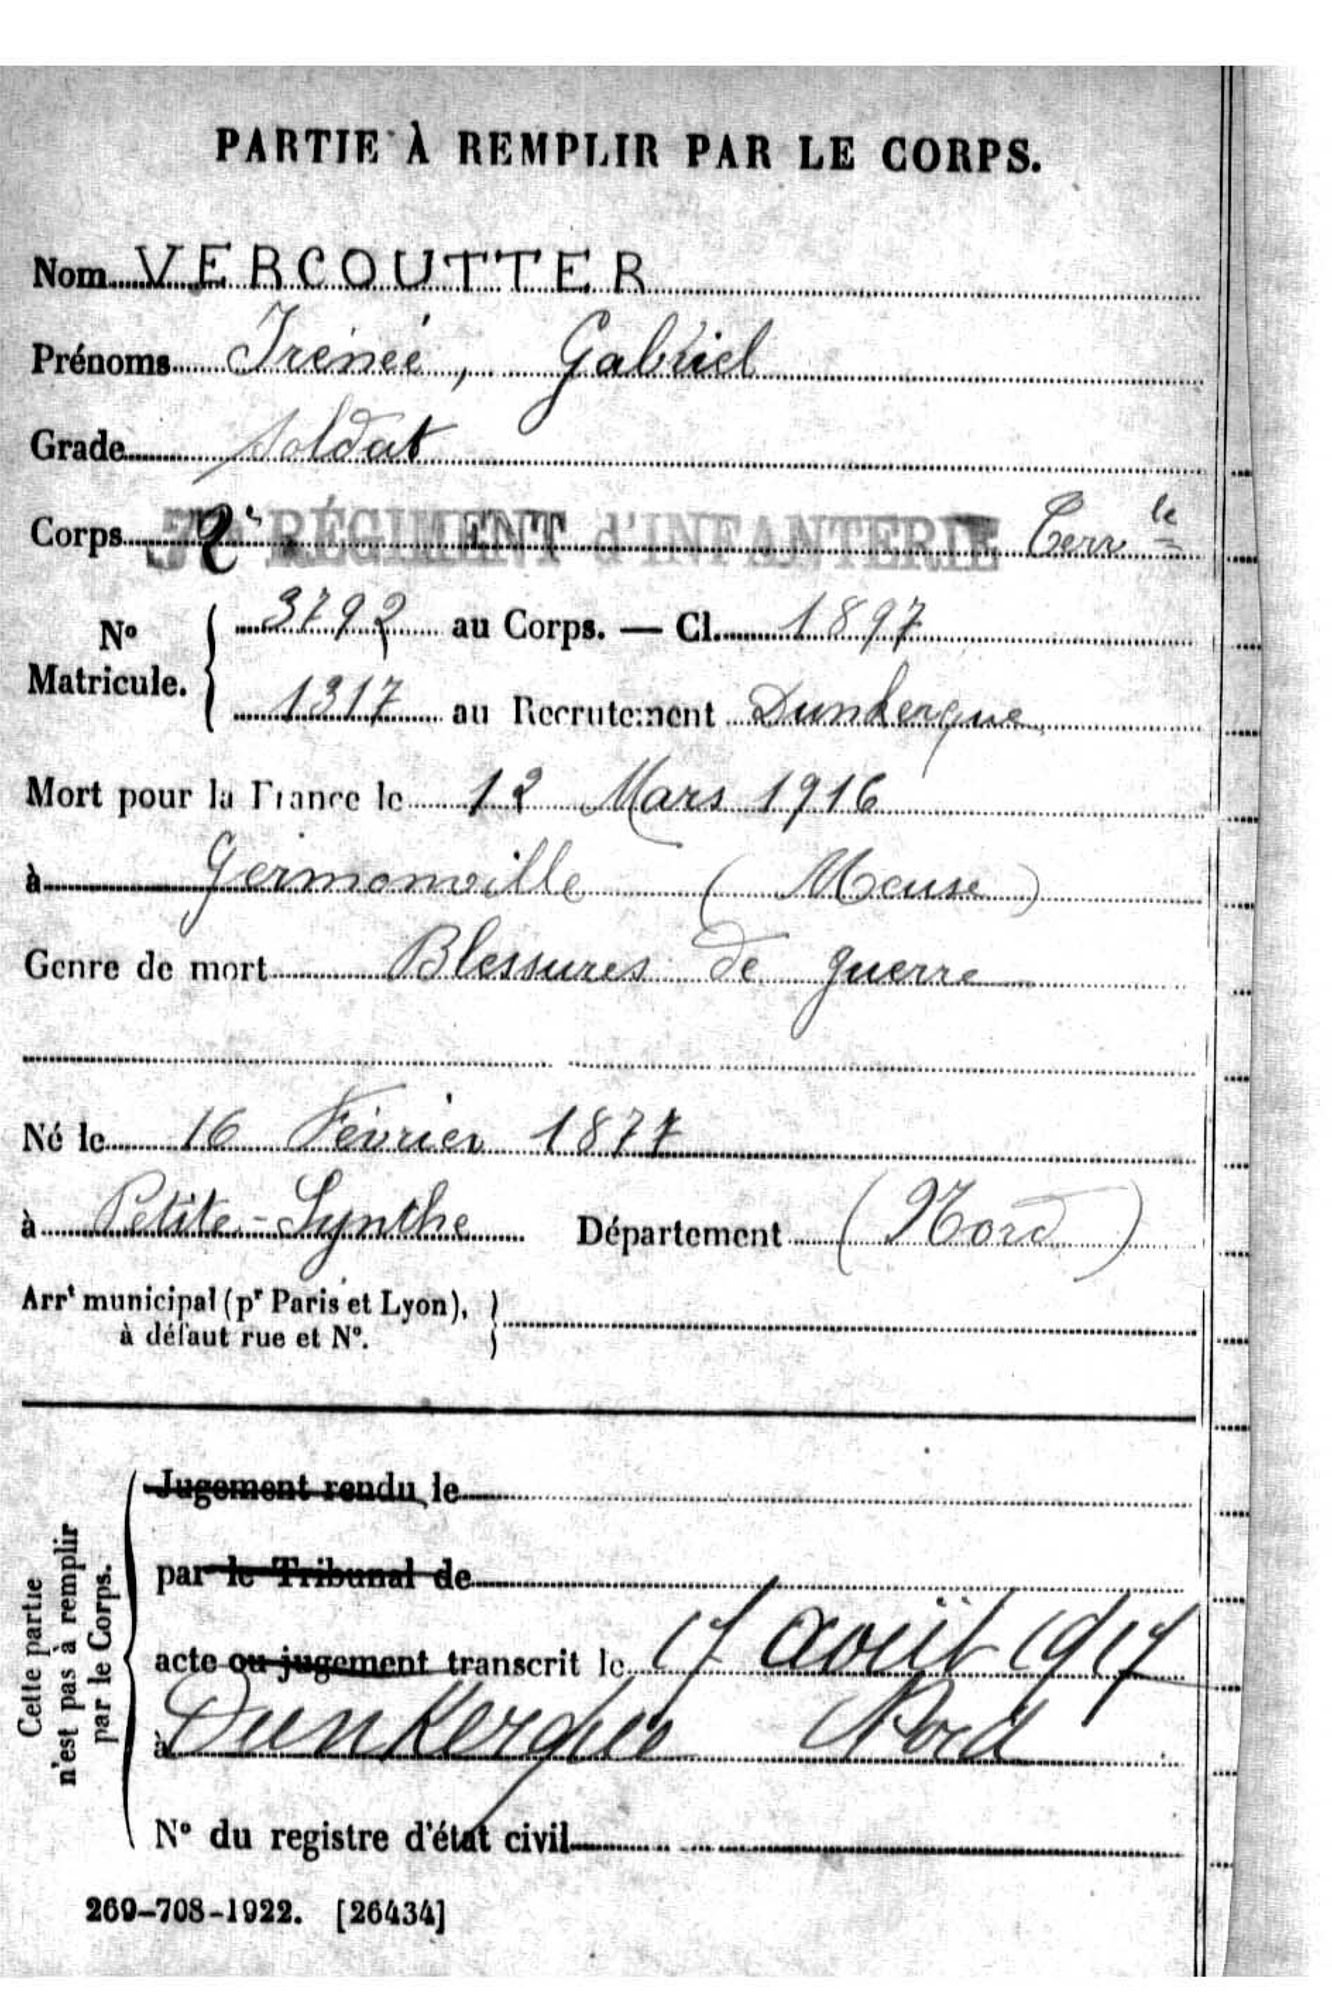 PARTIE À REMPLIR PAR LE CORPS.
Nom VERCOUTTER
Prénoms Irénée, Gabriel
Grade Soldat
Corps 2e RÉGIMENT d'INFANTERIE Terr le
No Matricule. 3792 au Corps. — Cl. 1897
1317 au Recrutement Dunkerque
Mort pour la France le 12 Mars 1916
à Germonville (Meuse)
Genre de mort Blessures de guerre
Né le 16 Février 1877
à Petite-Synthe Département (Nord)
Arrt municipal (pr Paris et Lyon),
à défaut rue et No.
Cette partie
n'est pas à remplir
par le Corps.
Jugement rendu le
par le Tribunal de
acte ou jugement transcrit le 17 août 1917
à Dunkerque Nord
No du registre d'état civil
269-708-1922. [26434]